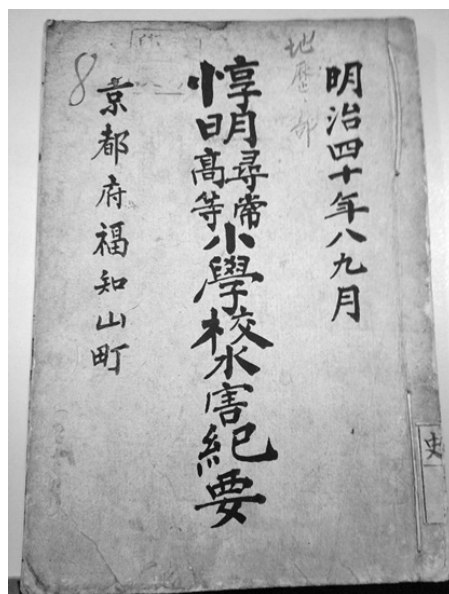 明治四十年八九月
地歴部
惇明尋常高等小學校水害紀要
京都府福知山町
8
史